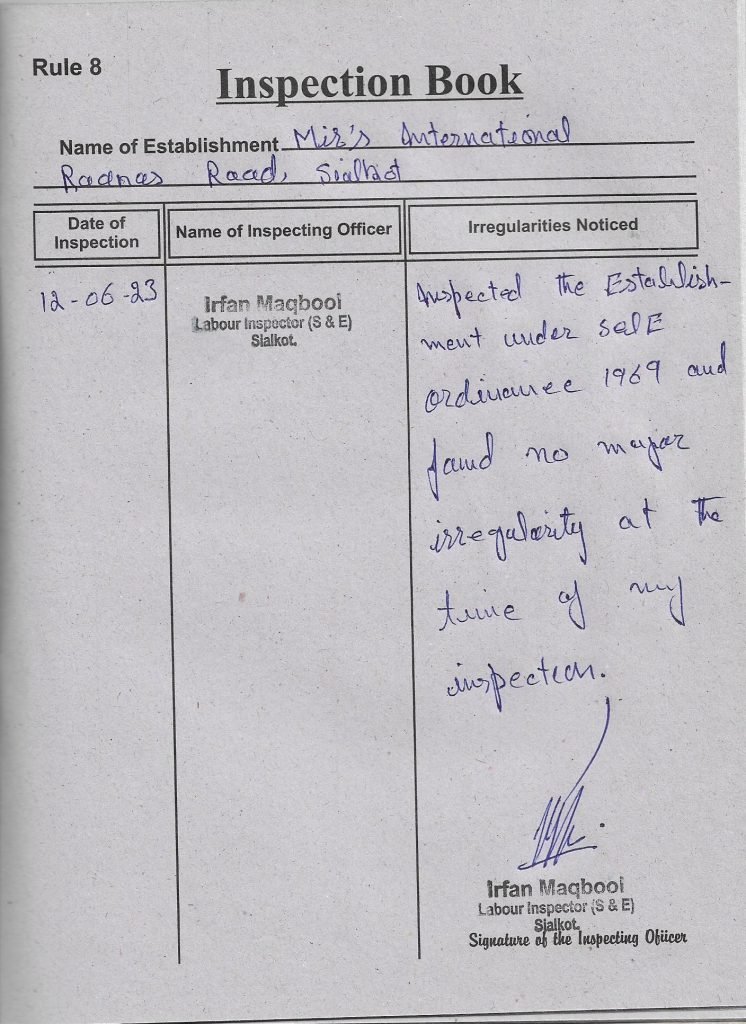 Rule 8
Inspection Book
Name of Establishment Mir's International
Road, Sialkot
Date of Inspection
Name of Inspecting Officer
Irregularities Noticed
12-06-23
Irfan Maqbool
Labour Inspector (S & E)
Sialkot.
Inspected the Establish-
ment under S&E
ordinance 1969 and
found no major
irregularity at the
time of my
inspection.
Irfan Maqbool
Labour Inspector (S & E)
Sialkot.
Signature of the Inspecting Ofiicer